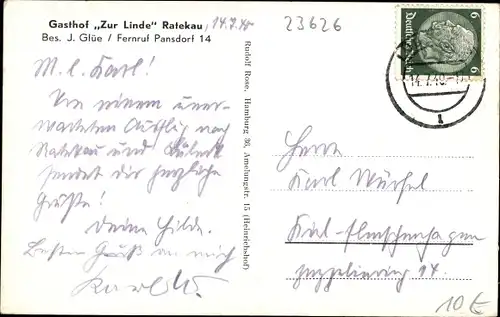 Gasthof „Zur Linde“ Ratekau, 14.7.40
Bes. J. Glüe / Fernruf Pansdorf 14
23626
Deutsches Reich
6 6
14.7.40
1
M. l. Karl!
Von einem uner-
warteten Ausflug nach
Ratekau und Lübeck
sendet dir herzliche
Grüße!
Deine Hilde.
Besten Gruß an mich
Karl W.
Rudolf Rose, Hamburg 36, Amelungstr. 15 (Heinrichshof)
Herrn
Karl Würfel
Kiel-
14.
10 €